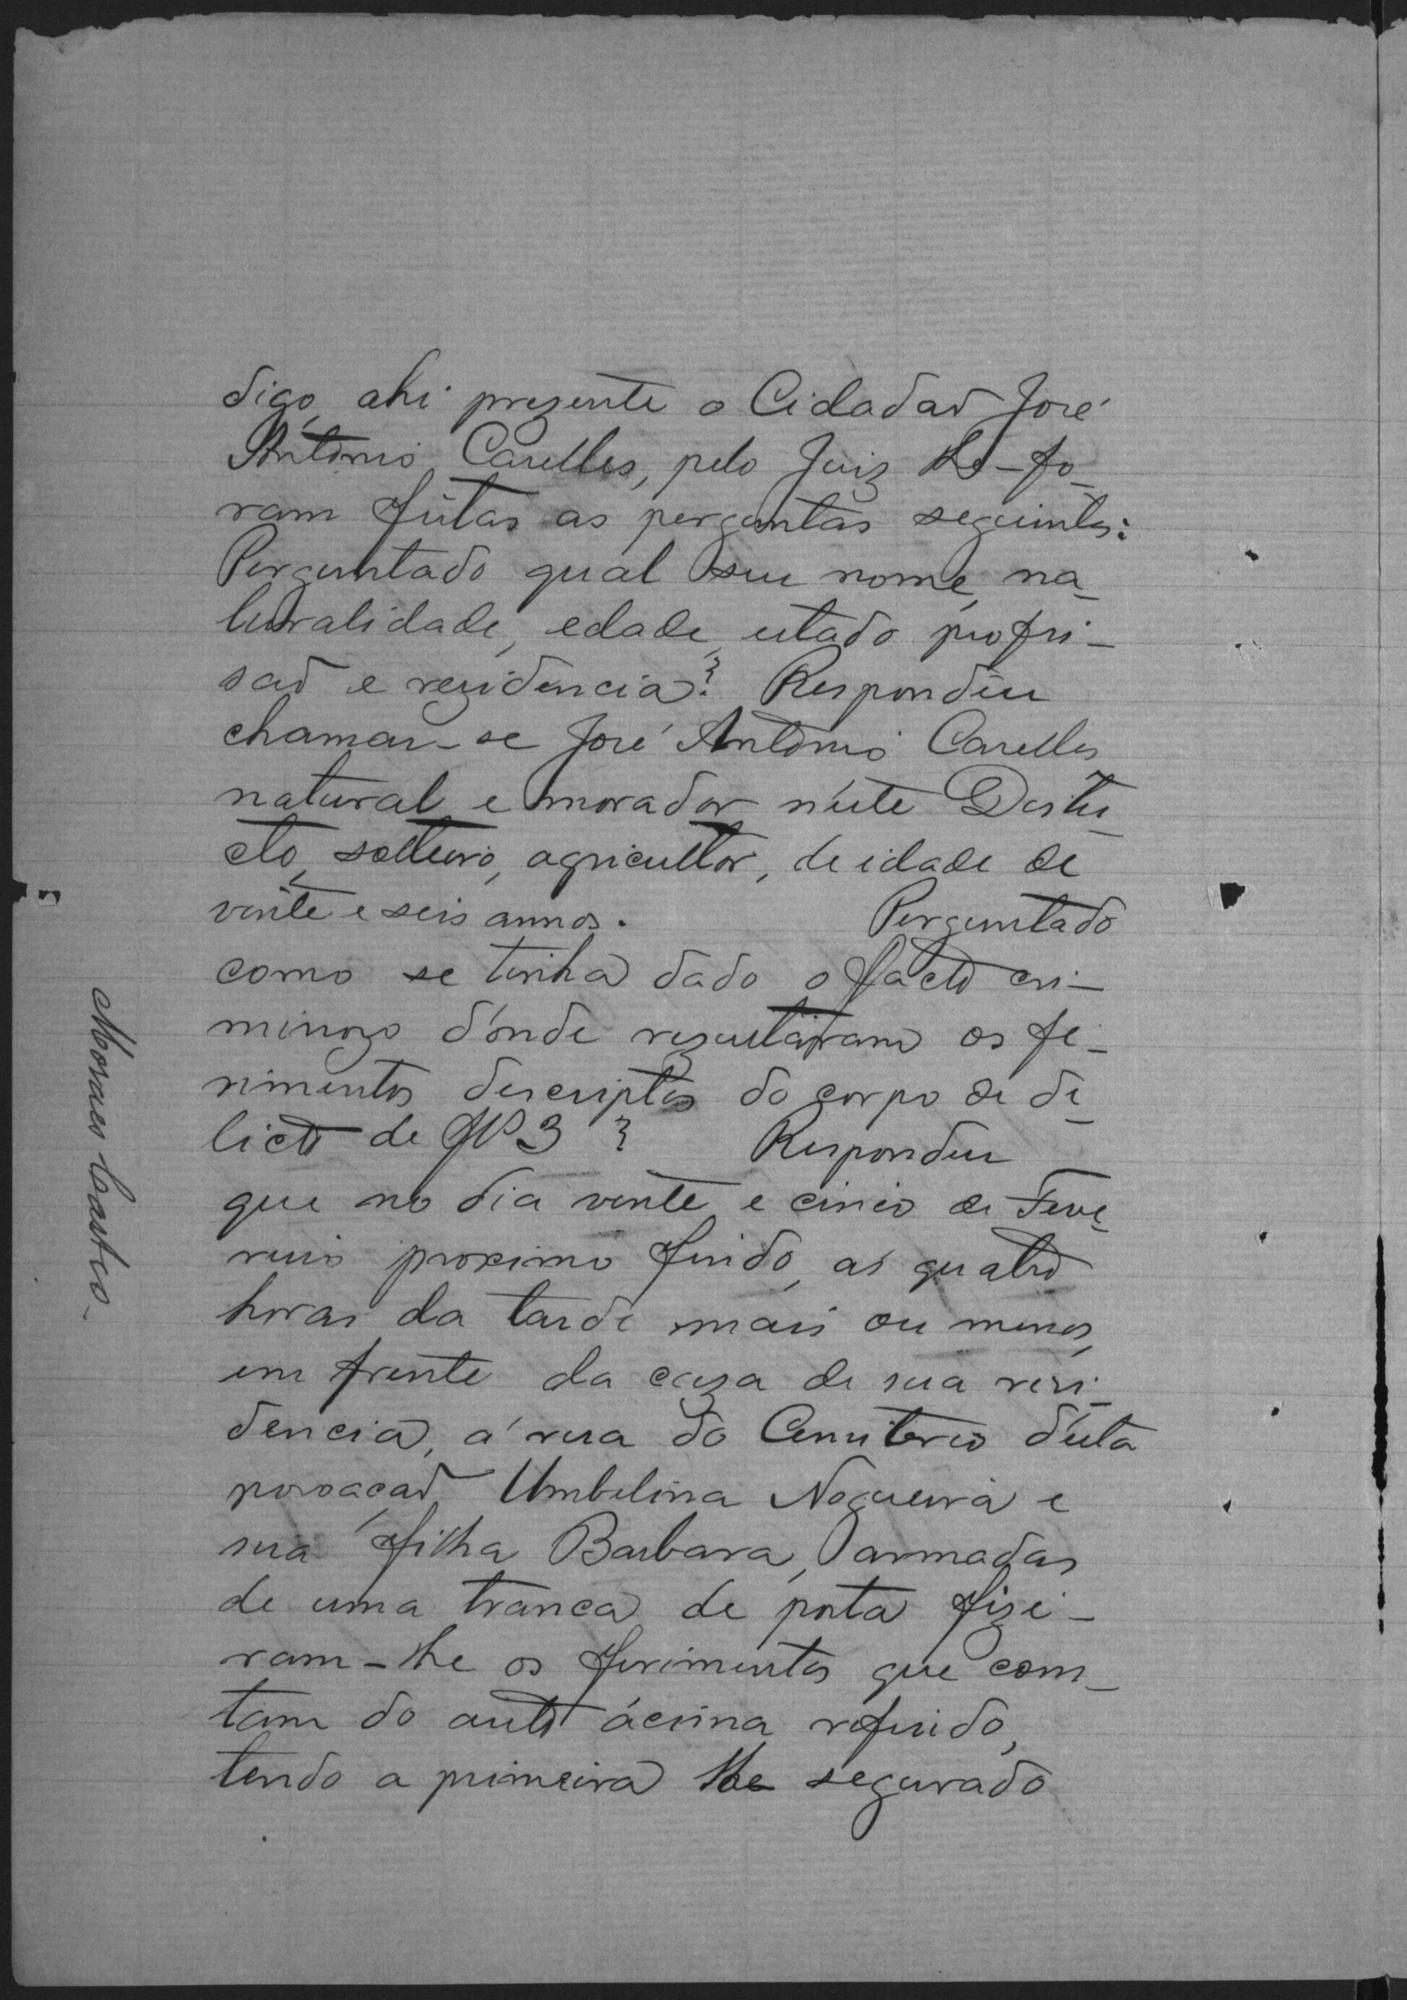 digo, ahi prezente o Cidadaõ José
António Carelles, pelo Juiz lhe-fo-
ram feitas as perguntas seguintes:
Perguntado qual seu nome, na-
turalidade, edade, estado profis-
saõ e rezidencia? Respondeu
chamar-se José António Carelles
natural e morador n'este Distri-
cto, solteiro, agricultor, de idade de
vinte e seis annos. Perguntado
como se tinha dado o facto cri-
minozo d'onde rezultaram os fe-
rimentos descriptos do corpo de de-
licto de fls 3? Respondeu
que no dia vinte e cinco de Feve-
reiro proximo findo, as quatro
horas da tarde mais ou menos,
em frente da caza de sua resi-
dencia, á rua do Cemiterio d'esta
povoaçaõ Umbelina Nogueira e
sua filha Barbara, armadas
de uma tranca de porta fize-
ram-lhe os ferimentos que com-
tam do auto ácima referido,
tendo a primeira lhe segurado
Moraes Castro